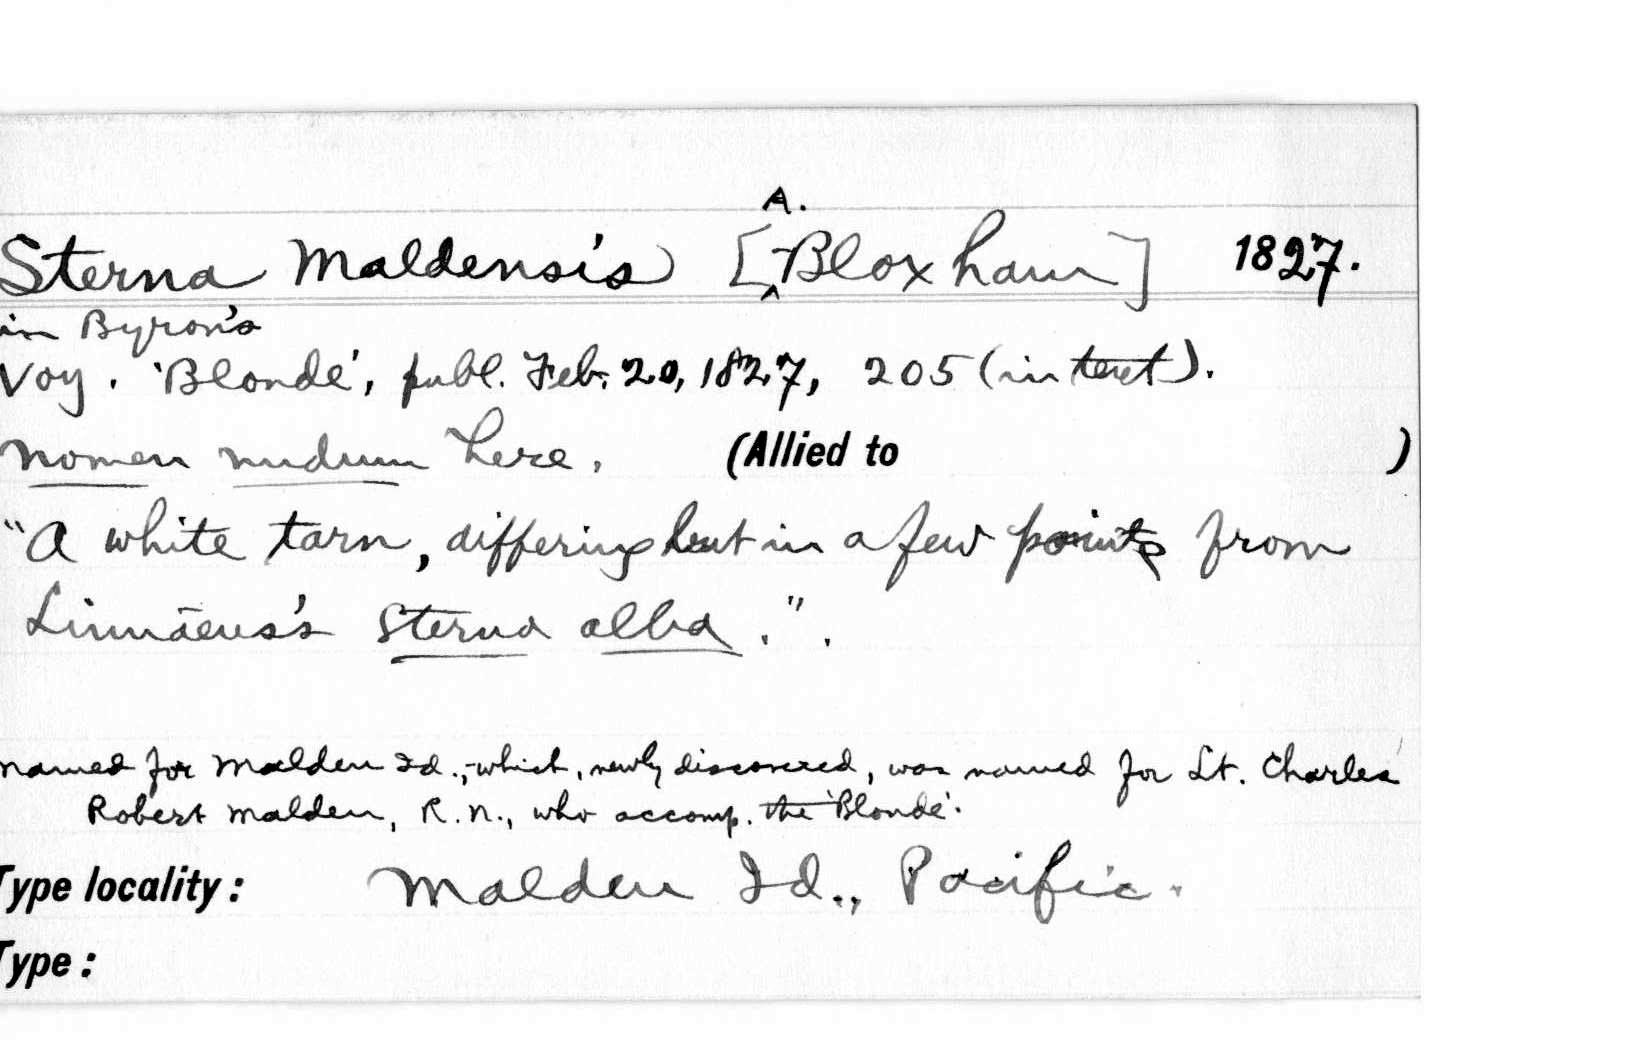 Sterna Maldensis [A. Bloxham] 1827.
in Byron's
Voy. 'Blonde', publ. Feb. 20, 1827, 205 (in text).
nomen nudum here. (Allied to )
"A white tarn, differing but in a few points from
Linnaeus's Sterna alba.".
named for Malden Id., which, newly discovered, was named for Lt. Charles
Robert Malden, R.N., who accomp. the 'Blonde'.
Type locality: Malden Id., Pacific.
Type: